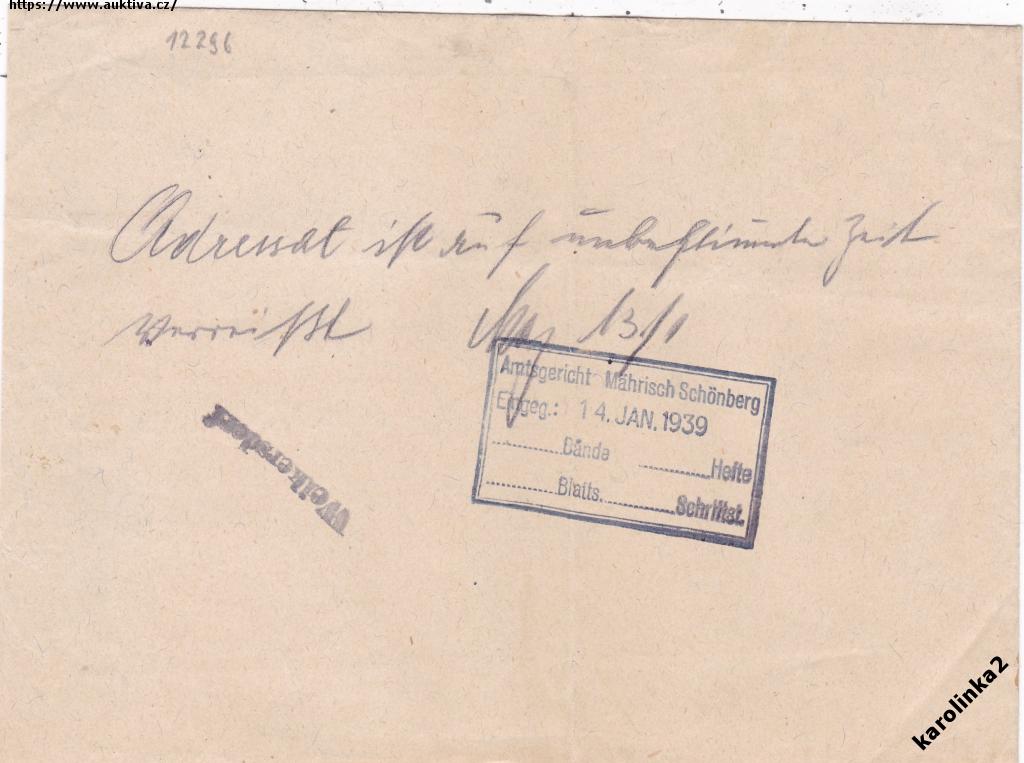 https://www.auktiva.cz/
12296
Adressat ist auf unbestimmte Zeit
verreißt 13/1
Amtsgericht Mährisch Schönberg
Eingeg.: 14. JAN. 1939
............Bände ............Hefte
............Blatts. ............Schriftst.
Weikersdorf
karolinka2